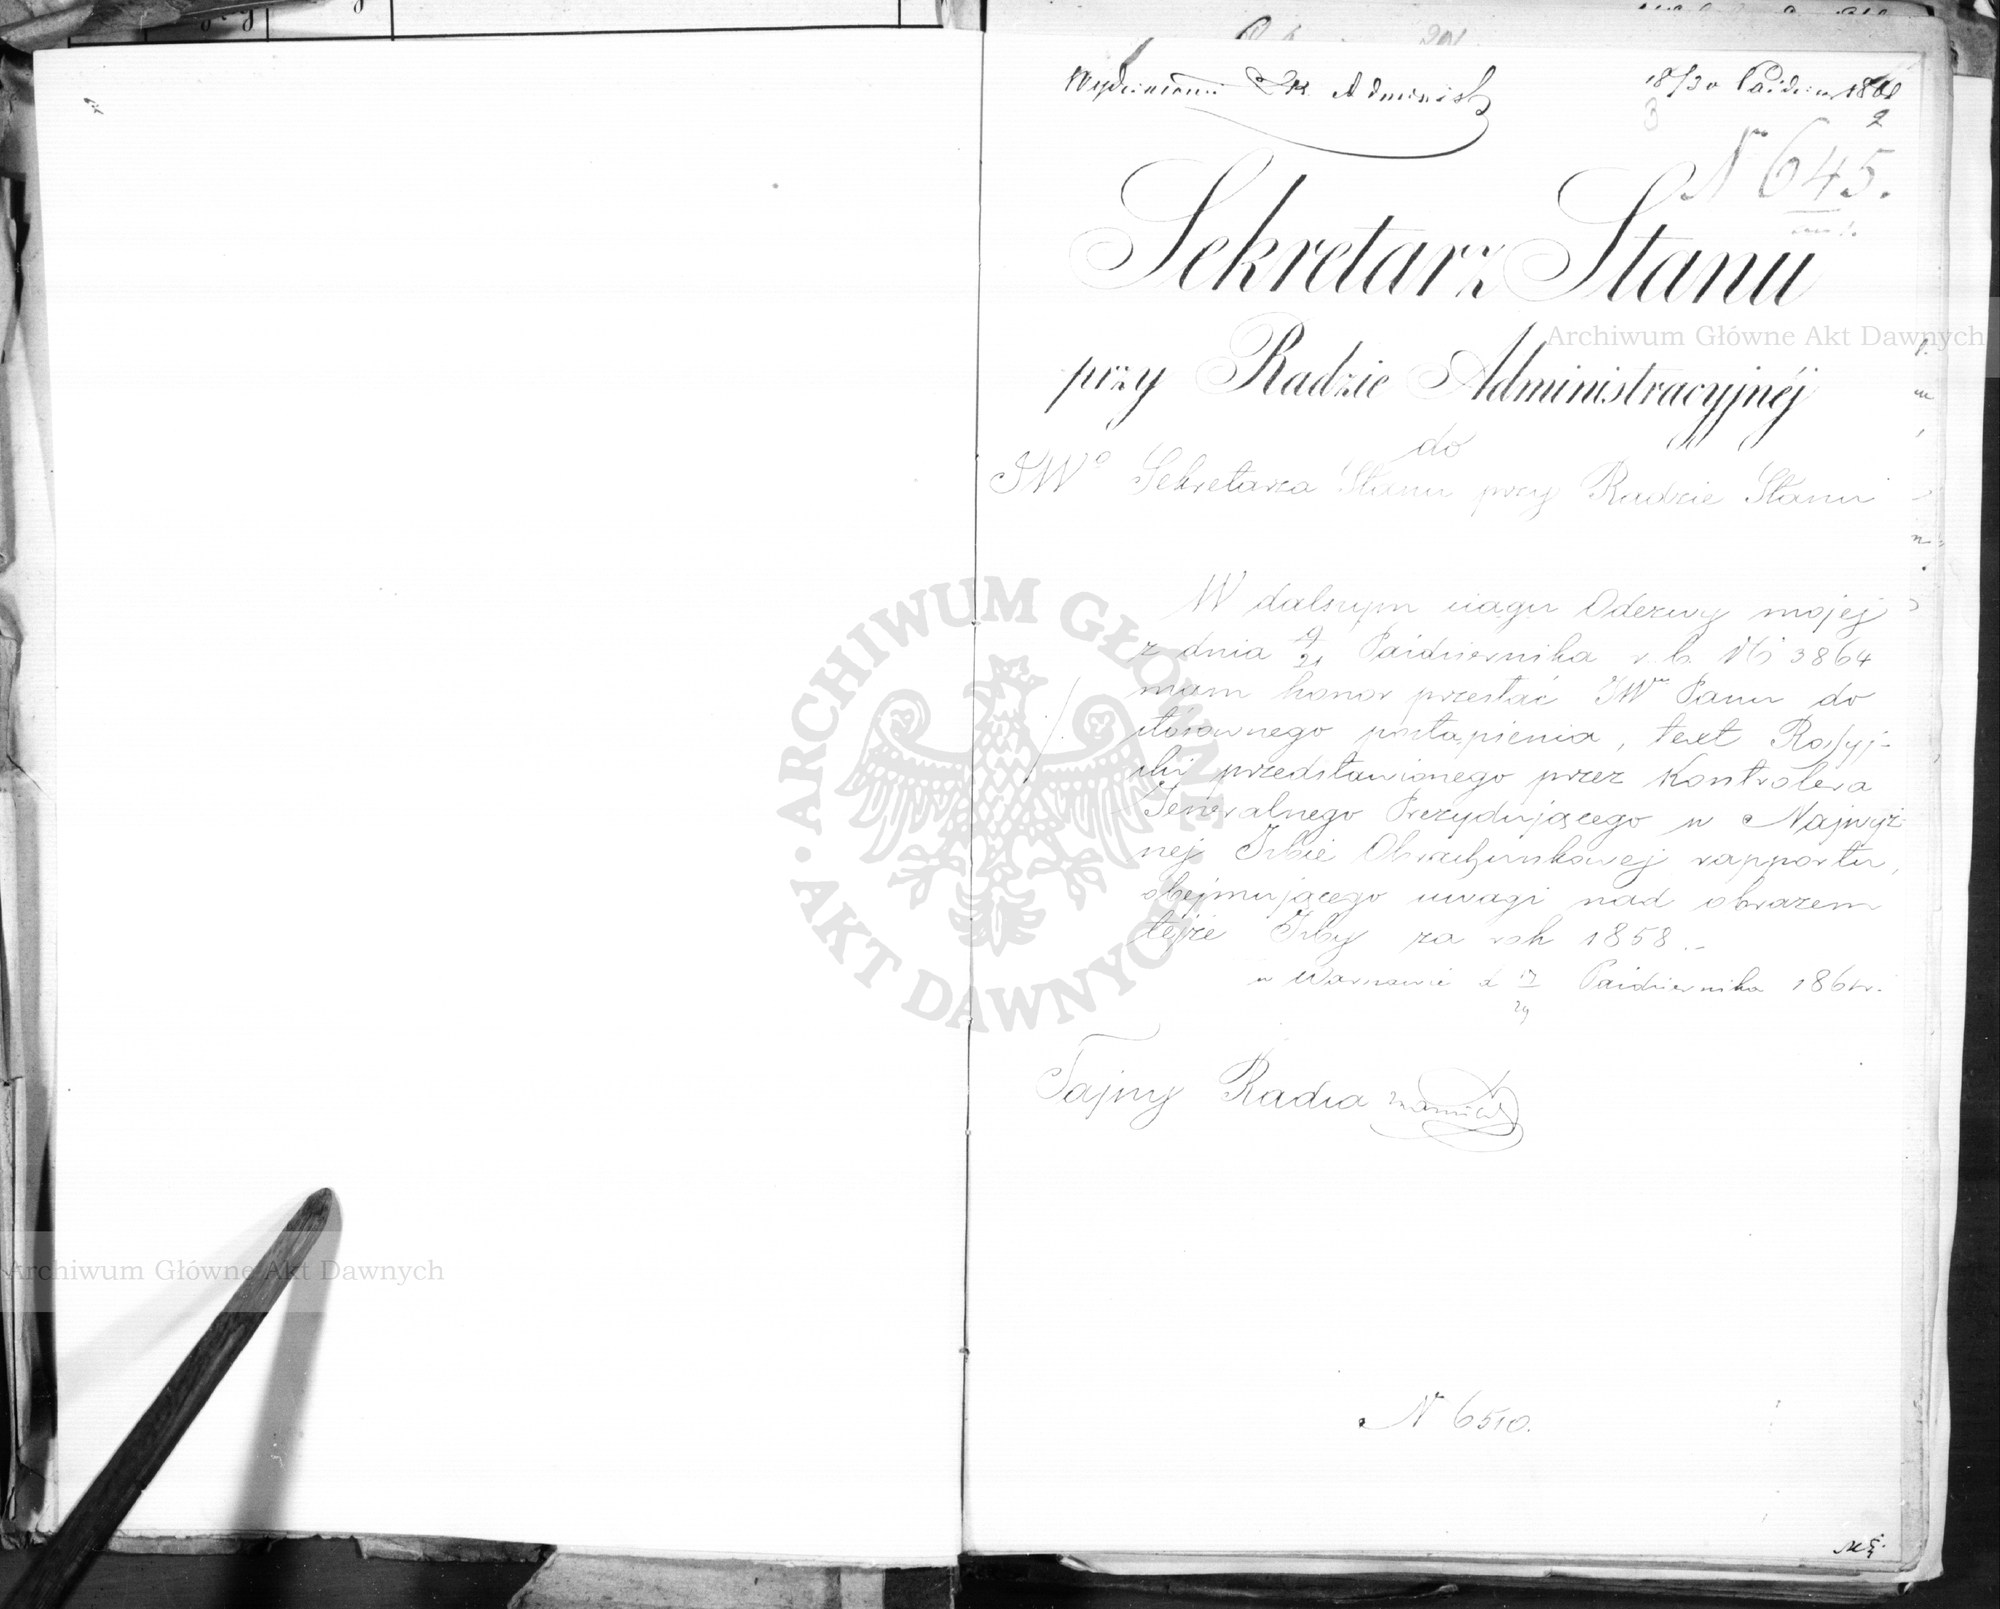 Wydziałowi Sk. Administr
18/30 Paźdz. 1861
3
2
N 645.
Sekretarz Stanu
przy Radzie Administracyjnéj
do
JWo Sekretarza Stanu przy Radzie Stanu
W dalszym ciągu Odezwy mojej
z dnia 9/21 Października r. b. No 3864
mam honor przesłać JWmu Panu do
stósownego postąpienia, text Rossyj-
ski przedstawionego przez Kontrolera
Jeneralnego Prezydującego w Najwyż-
nej Izbie Obrachunkowej rapportu,
obejmującego uwagi nad obrazem
tejże Izby za rok 1858.-
w Warszawie d. 17/29 Października 1861 r.
Tajny Radca
N 6510.
ARCHIWUM GŁÓWNE AKT DAWNYCH
Archiwum Główne Akt Dawnych
Archiwum Główne Akt Dawnych